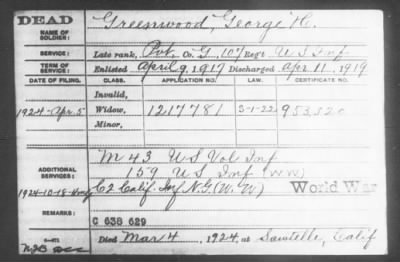 DEAD
NAME OF SOLDIER: Greenwood, George H.
SERVICE: Late rank, Pvt. Co. G, 107 Regt. U S Inf
TERM OF SERVICE: Enlisted April 9, 1917 Discharged Apr 11, 1919
DATE OF FILING. CLASS. APPLICATION NO. LAW. CERTIFICATE NO.
Invalid,
1924-Apr. 5 Widow, 1217781 3-1-22 953520
Minor,
ADDITIONAL SERVICES: M 43 U S Vol Inf
159 U S Inf (WW)
1924-10-18 C2 Calif. Inf N.G. (W.W) World War
REMARKS: C 638 629
Died Mar 4, 1924, at Sawtelle, Calif